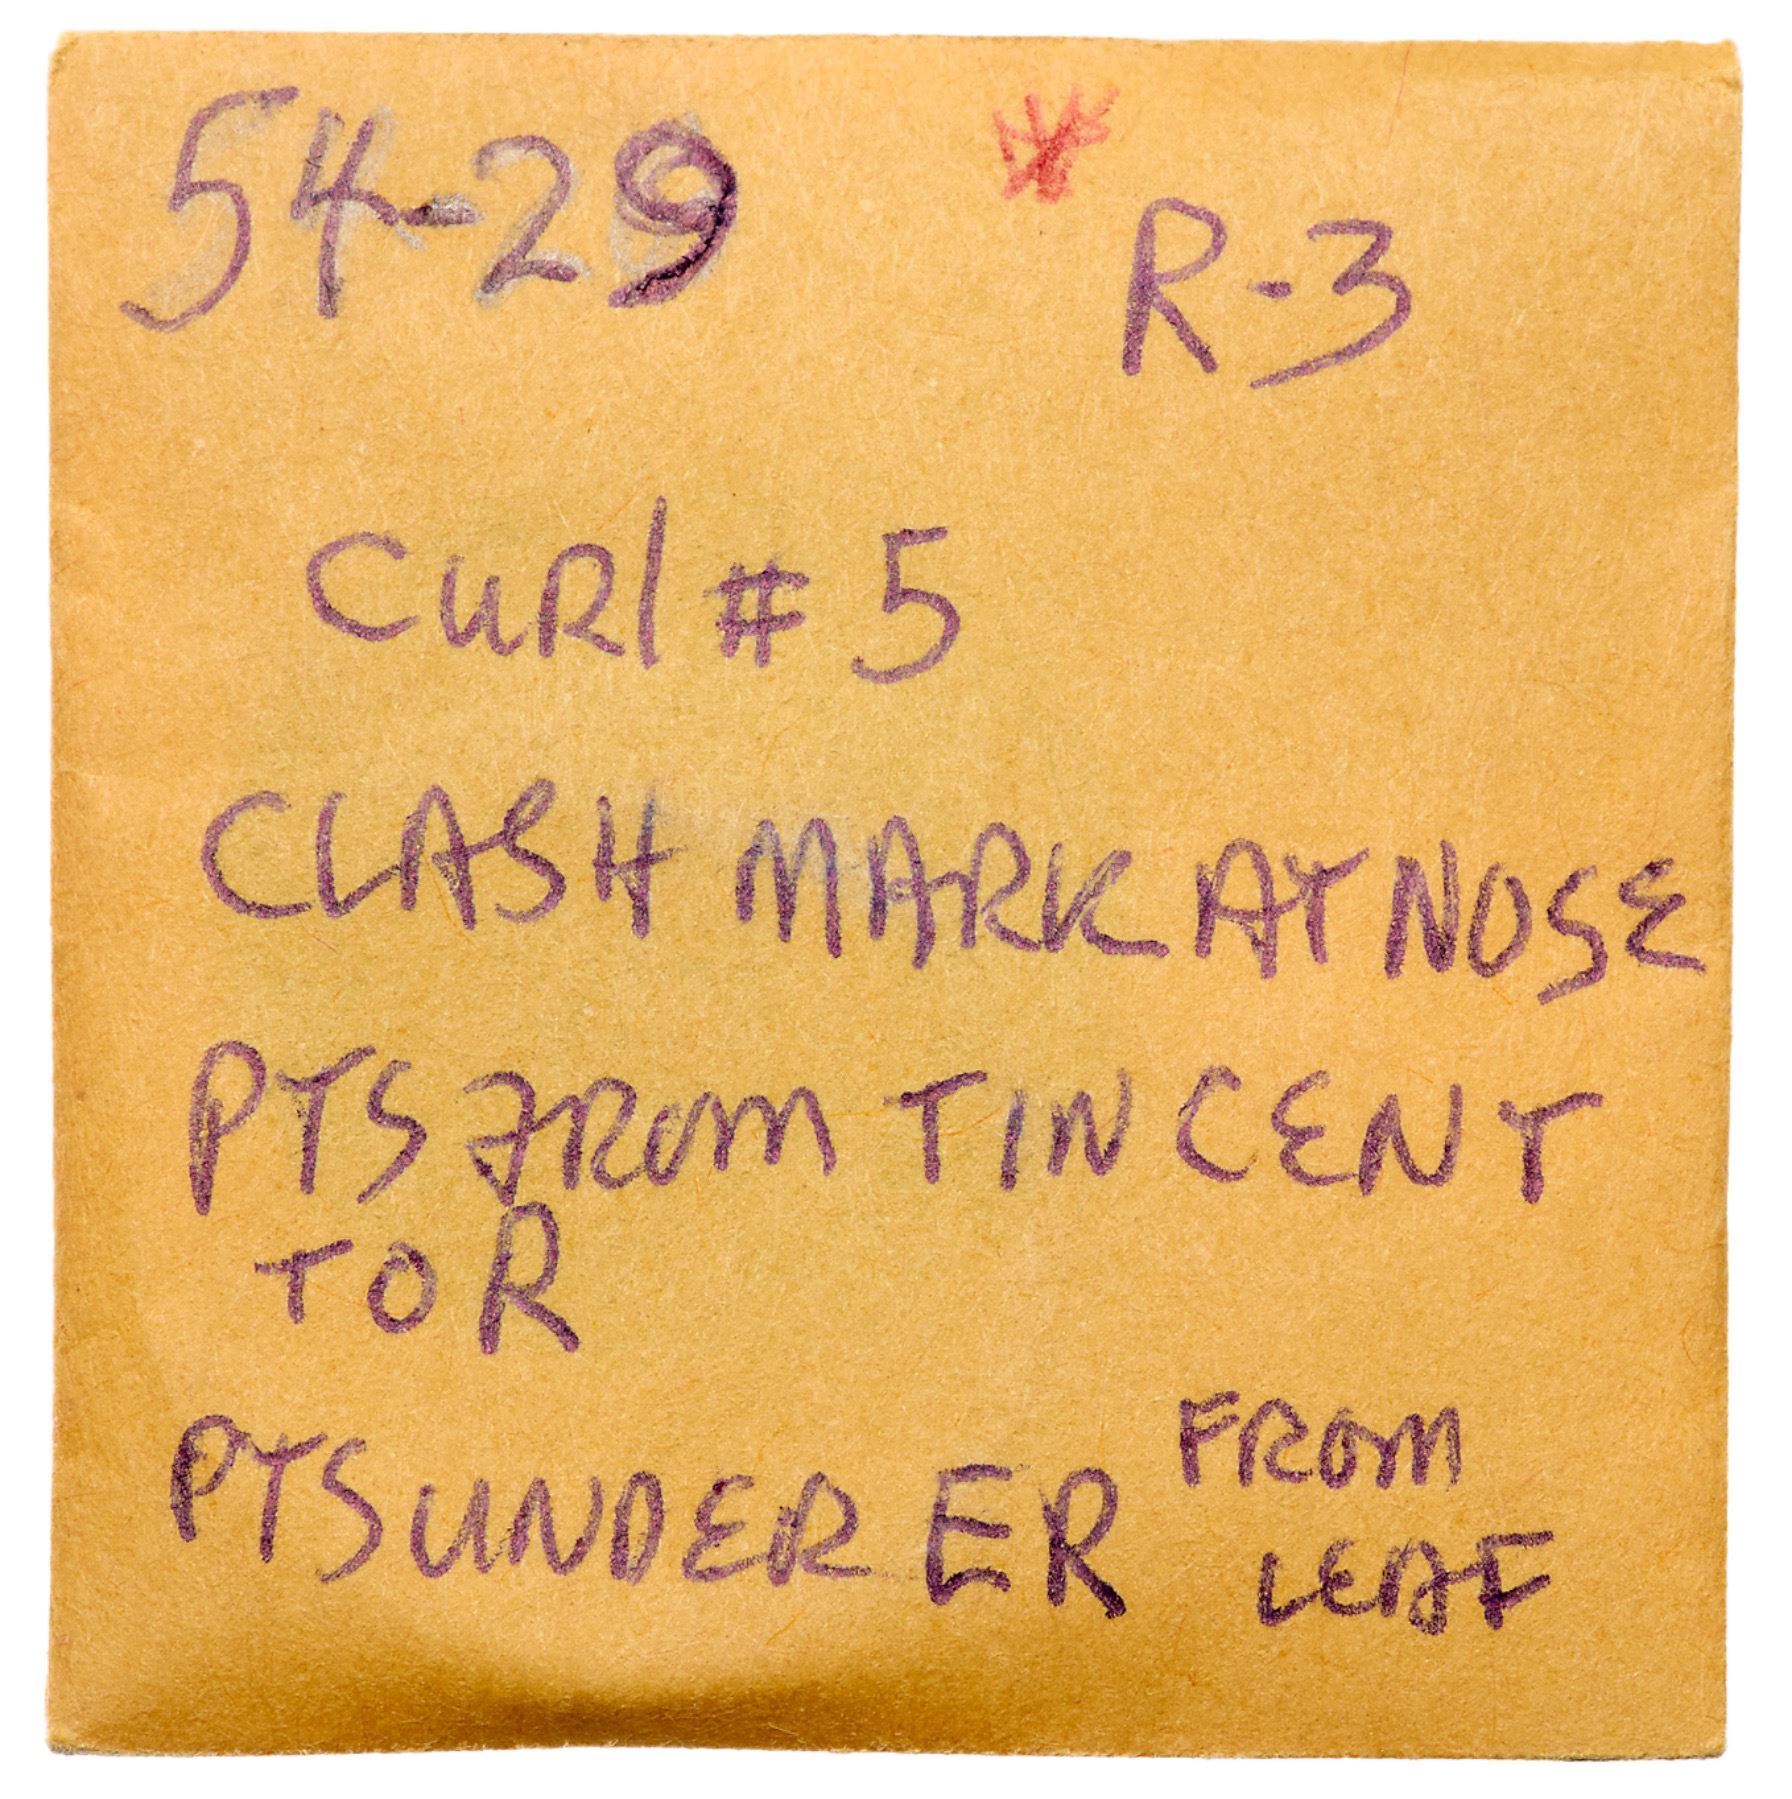 54-29 *
R-3
CURl # 5
CLASH MARK AT NOSE
PTS FROM T IN CENT
TO R
PTS UNDER ER FROM
LEAF